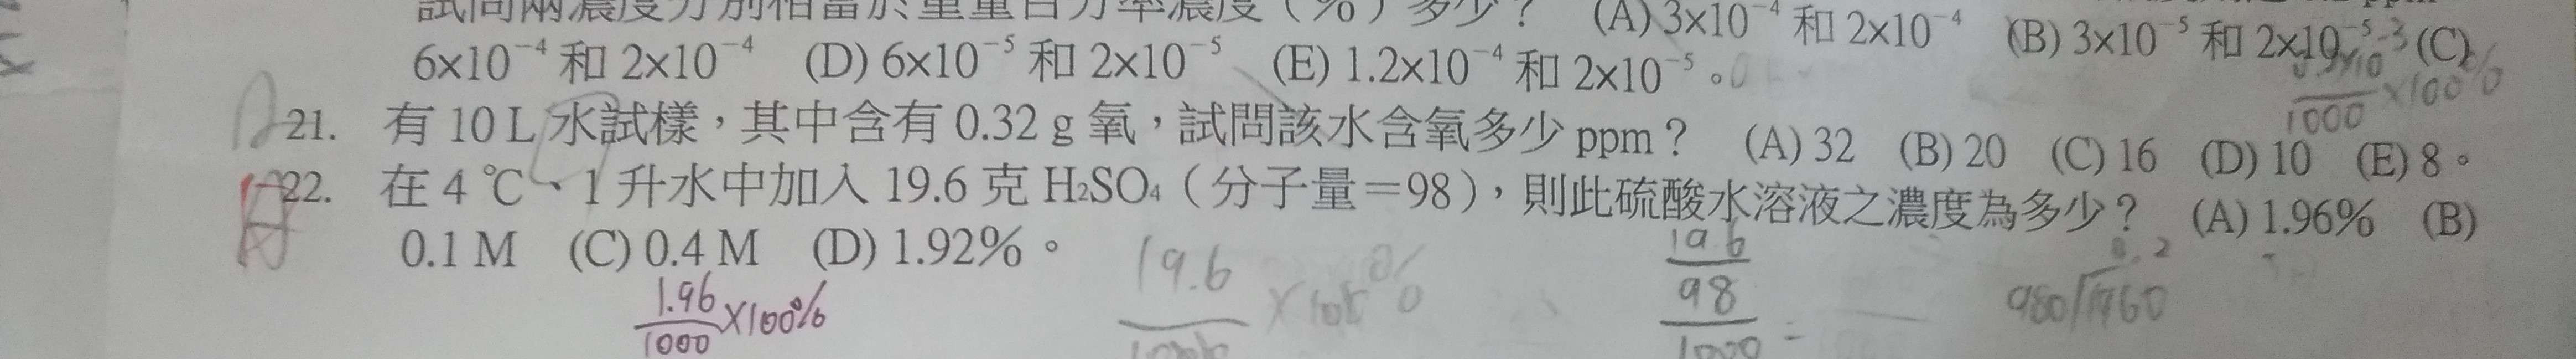 試問兩濃度分別相當於重量百分率濃度（%）多少？ (A) 3×10⁻⁴ 和 2×10⁻⁴ (B) 3×10⁻⁵ 和 2×10⁻⁵ (C)
6×10⁻⁴ 和 2×10⁻⁴ (D) 6×10⁻⁵ 和 2×10⁻⁵ (E) 1.2×10⁻⁴ 和 2×10⁻⁵。
1000 ×100%
21. 有 10 L 水試樣，其中含有 0.32 g 氧，試問該水含氧多少 ppm？ (A) 32 (B) 20 (C) 16 (D) 10 (E) 8。
22. 在 4 ℃、1 升水中加入 19.6 克 H₂SO₄（分子量＝98），則此硫酸水溶液之濃度為多少？ (A) 1.96% (B)
0.1 M (C) 0.4 M (D) 1.92%。
1.96
1000 ×100%
19.6
19.6
98
1000 =
980 1960